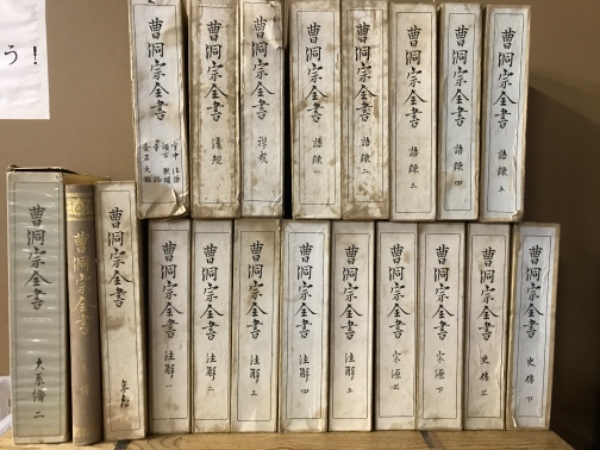 う!
曹洞宗全書
曹洞宗全書
清規
曹洞宗全書
禅戒
曹洞宗全書
語録 一
曹洞宗全書
語録 二
曹洞宗全書
語録 三
曹洞宗全書
語録 四
曹洞宗全書
語録 五
曹洞宗全書
大系譜 二
曹洞宗全書
曹洞宗全書
年表
曹洞宗全書
注解 一
曹洞宗全書
注解 二
曹洞宗全書
注解 三
曹洞宗全書
注解 四
曹洞宗全書
注解 五
曹洞宗全書
宗源 上
曹洞宗全書
宗源 下
曹洞宗全書
史傳 上
曹洞宗全書
史傳 下